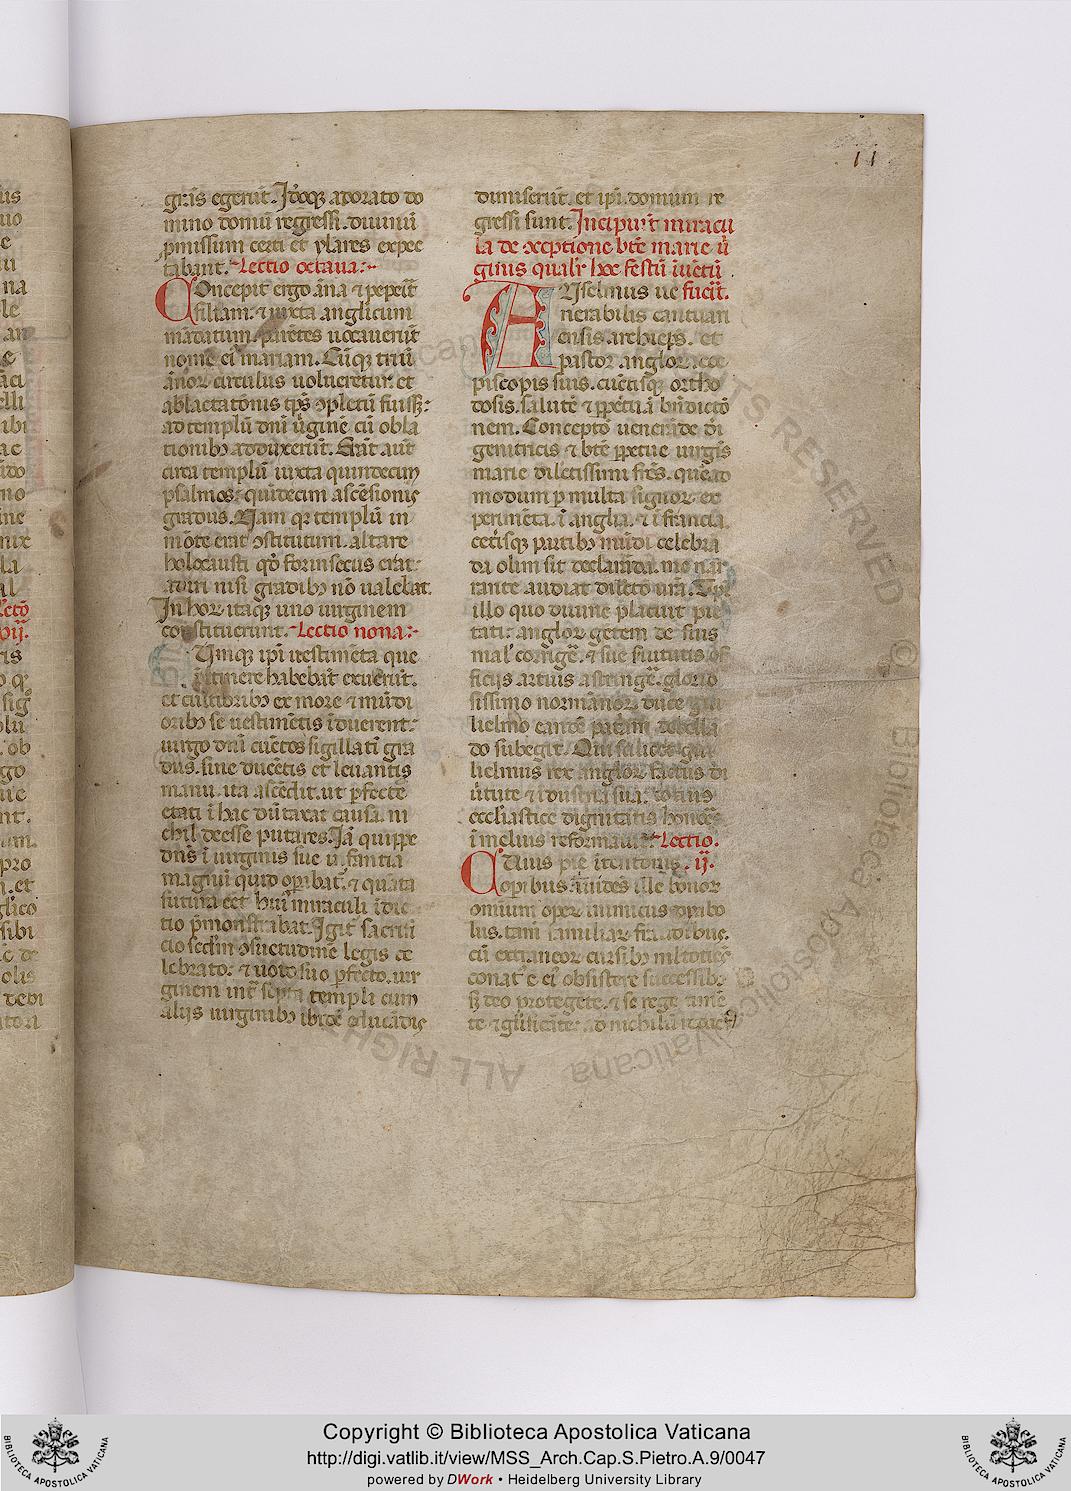 11
gr̄is egerūt. Itaqꝫ adorato do
mino domū regressi. diuinū
p̄missum certi et ylares expec
tabant. Lectio octaua:
Concepit ergo āna ⁊ peperit̄
filiam. ⁊ iuxta anglicum
mādatum. parētes uocauerūt
nomē ei mariam. Cūqꝫ triū
ānoꝝ circulus uolueretur. et
ablactatōnis tp̄s ꝯpletū fuiss̄.
ad templū dn̄i ūginē cū obla
tionibꝫ adduxerūt. Erāt aūt
circa templū iuxta quindecim
psalmos. quīdecim ascēsionis
gradus. Nam qꝛ templū in
mōte erat ꝯstitutum. altare
holocausti qd̄ forinsecus erat.
adiri nisi gradibꝫ nō ualebat.
In hoꝝ itaqꝫ uno uirginem
constituerunt. Lectio nona:
Cumqꝫ ipi uestimēta que
ī itinere habebāt exuerūt.
et cultioribꝫ ex more ⁊ mūdi
oribꝫ se uestimētis īduerent.
uirgo dn̄i cūctos sigillatī gra
dus. sine ducētis et leuantis
manu. ita ascēdit. ut p̄fecte
etati ī hac dūtaxat causa. ni
chil deesse putares. Iā quippe
dn̄s ī uirginis sue īfantia
magnū quid opabat̄. ⁊ quāta
futura eēt huiꝰ miraculi īdic
tio p̄monstrabat. Igit̄ sacrifi
cio scd̄m ꝯsuetudinē legis ce
lebrato. ⁊ uoto suo ꝑfecto. uir
ginem int̄ septa templi cum
aliis uirginibꝫ ibidē educādis
dimiserūt. et ipi domum re
gressi sunt. Incipiūt miracu
la de ꝯceptione btē marie ū
ginis qualr̄ hoc festū īuētū
fuerit.
ANselmus ue
nerabilis cantuari
ensis archiepс̄. et
pastor angloꝝ. coe
piscopis suis. cūctisqꝫ ortho
doxis. salutē ⁊ ꝑpetuā bn̄dictō
nem. Conceptō uenerāde dī
genitricis ⁊ btē ꝑpetue uirgīs
marie. dilectissimi frēs. quēad
modum ꝑ multa signoꝝ ex
perimēta. ī anglia. ⁊ ī francia
cet̄isqꝫ partibꝫ mūdi celebrā
da olim sit declarata. me nar
rante audiat dilectō ur̄a. Tp̄e
illo quo diuine placuit pie
tati. angloꝝ gētem de suis
mal' corrigē. ⁊ sue seruitutis of
ficiis. artius astringē. glorio
sissimo normānoꝝ duce gui
lielmo eandē patriā debella
do subegit. Qui scilicet gui
lielmus rex angloꝝ factus. dī
ūtute ⁊ īdustria sua. totius
ecclīastice dignitatis honōes
ī melius reformauit. Lectio.
Cuius pie ītentionis. ij.
opibus. īuidēs ille bonoꝝ
omnium opeꝝ inimicus dyabo
lus. tam familiaꝝ fraudibus.
cū extraneoꝝ cursibꝫ multotiēs
conatꝰ ē eiꝰ obsistere successibꝫ.
sꝫ deo protegēte. ⁊ se regē timē
te ⁊ gl̄ificāte. ad nichilū
Copyright © Biblioteca Apostolica Vaticana
http://digi.vatlib.it/view/MSS_Arch.Cap.S.Pietro.A.9/0047
powered by DWork • Heidelberg University Library